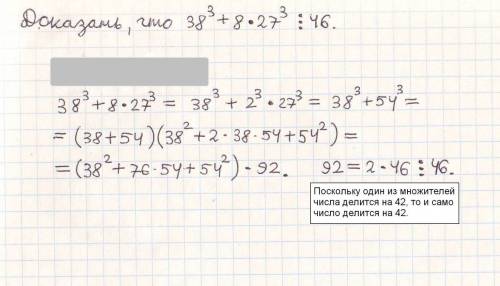 Доказать, что 38³ + 8 · 27³ ⋮ 46.
38³ + 8 · 27³ = 38³ + 2³ · 27³ = 38³ + 54³ =
= (38 + 54)(38² + 2 · 38 · 54 + 54²) =
= (38² + 76 · 54 + 54²) · 92. 92 = 2 · 46 ⋮ 46.
Поскольку один из множителей
числа делится на 42, то и само
число делится на 42.